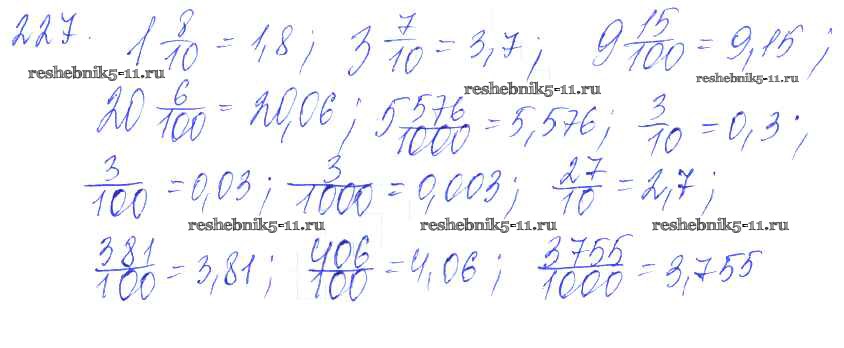 227. 1 8/10 = 1,8; 3 7/10 = 3,7; 9 15/100 = 9,15;
reshebnik5-11.ru reshebnik5-11.ru reshebnik5-11.ru
20 6/100 = 20,06; 5 576/1000 = 5,576; 3/10 = 0,3;
3/100 = 0,03; 3/1000 = 0,003; 27/10 = 2,7;
reshebnik5-11.ru reshebnik5-11.ru reshebnik5-11.ru
381/100 = 3,81; 406/100 = 4,06; 3755/1000 = 3,755